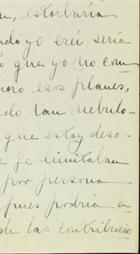 n, estorbaría
ndo yo creí sería
ó que yo no com
noro esos planes,
do tan nebulo-
que estoy deso-
se limitaban
por persona
pues podría a
de las contribucio